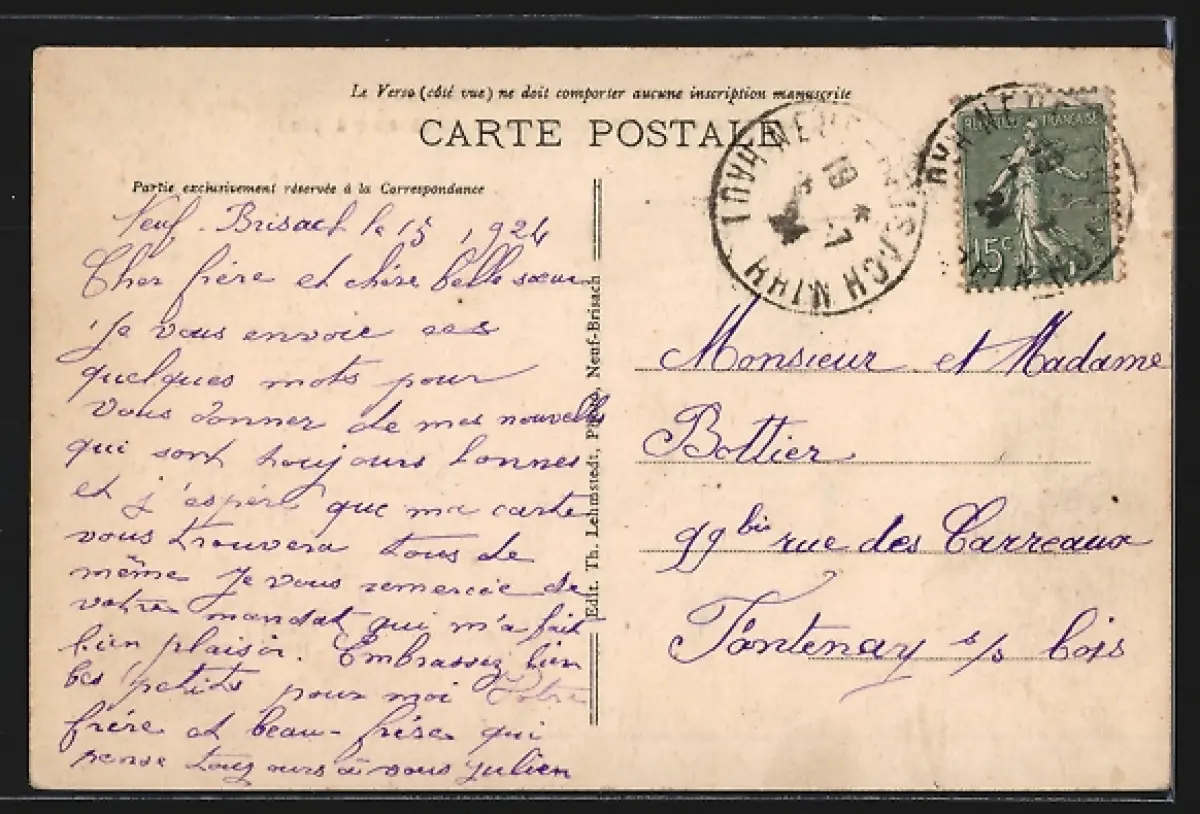 Le Verso (côté vue) ne doit comporter aucune inscription manuscrite
CARTE POSTALE
Partie exclusivement réservée à la Correspondance
Neuf-Brisach le 15 , 1924
Cher frère et chère belle sœur
Je vous envoie ses
quelques mots pour
vous donner de mes nouvelles
qui sont toujours bonnes
et j'espère que ma carte
vous trouvera tous de
même Je vous remercie de
votre mandat qui m'a fait
bien plaisir. Embrassez bien
les petits pour moi Votre
frère et beau-frère qui
pense toujours à vous Julien
Edit. Th. Lehmstedt, Neuf-Brisach
REPUBLIQUE FRANÇAISE
15c
19
HAUT RHIN
Monsieur et Madame
Bottier
99 bis rue des Carreaux
Fontenay s/s bois